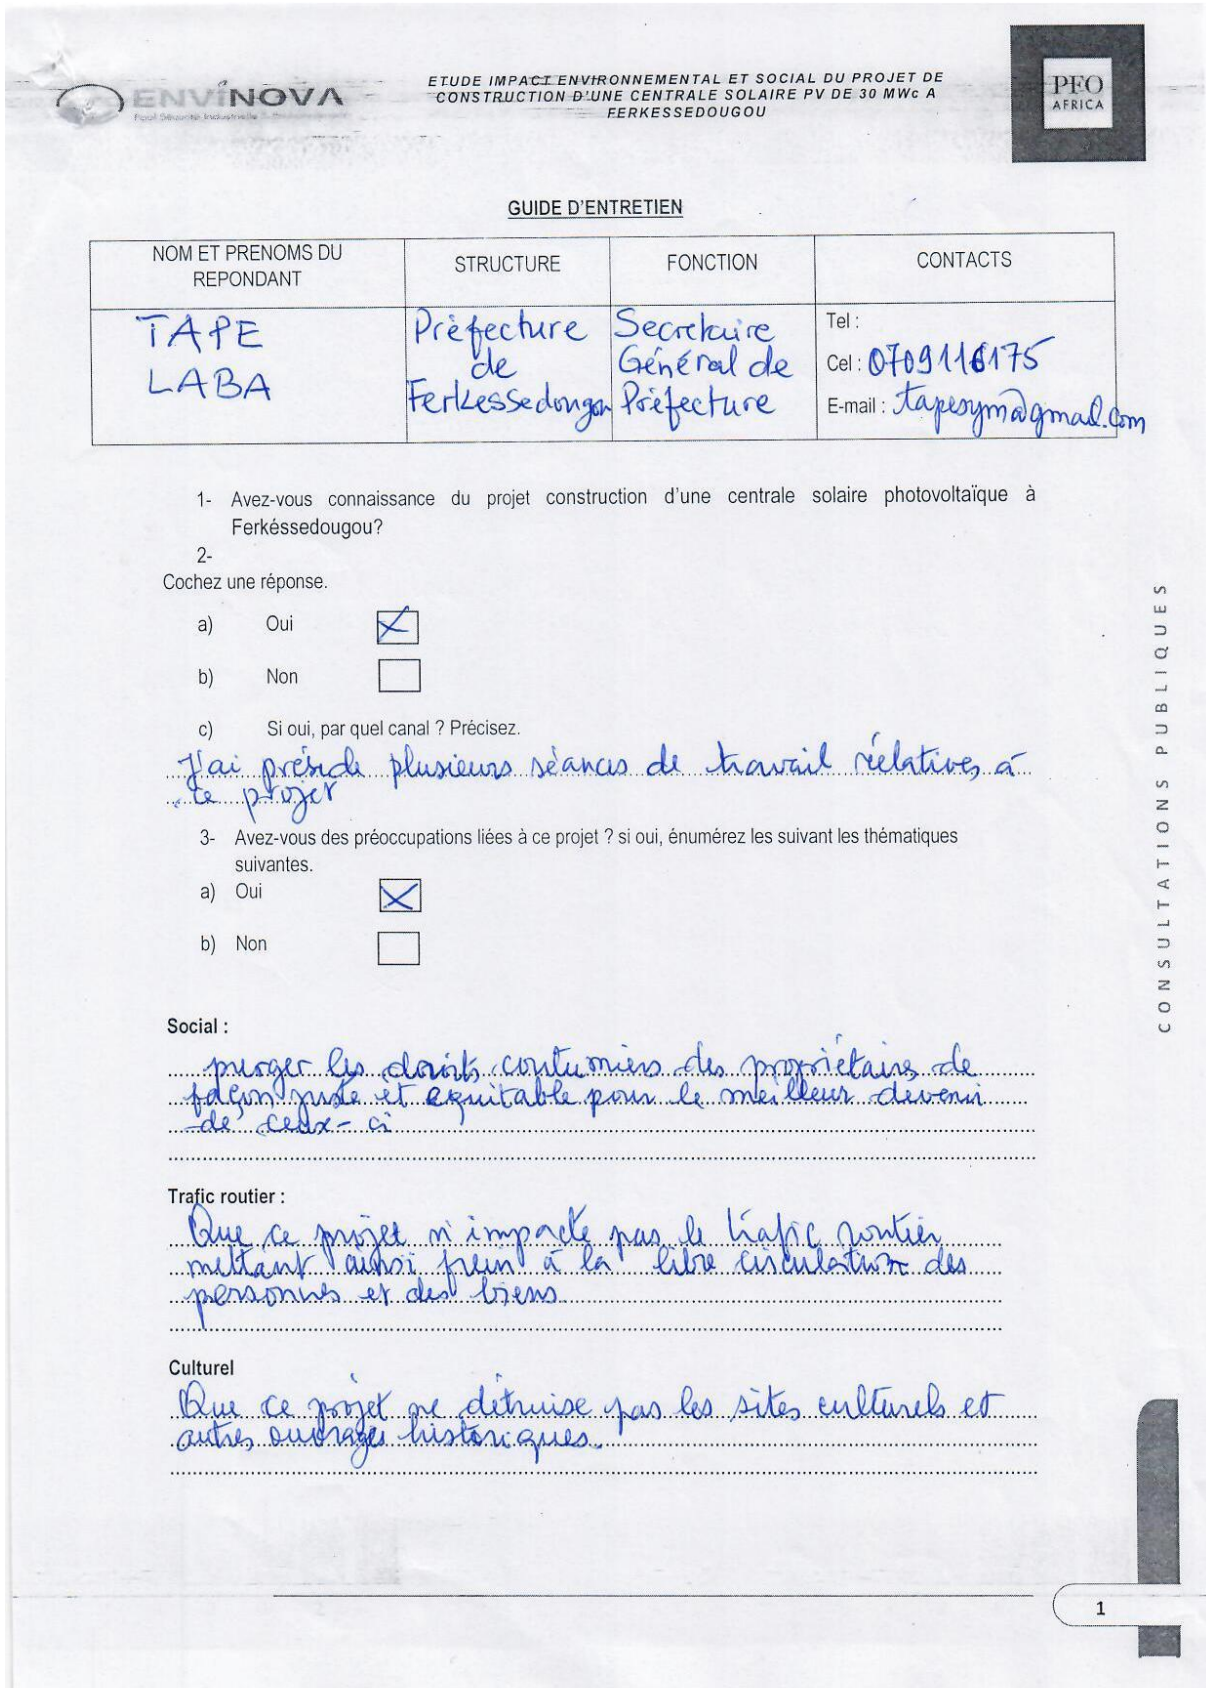 ENVINOVA
Pool Sécurité Industrielle
ETUDE IMPACT ENVIRONNEMENTAL ET SOCIAL DU PROJET DE
CONSTRUCTION D'UNE CENTRALE SOLAIRE PV DE 30 MWc A
FERKESSEDOUGOU
PFO
AFRICA
GUIDE D'ENTRETIEN
NOM ET PRENOMS DU
REPONDANT
STRUCTURE
FONCTION
CONTACTS
TAPE
LABA
Préfecture
de
Ferkessedougou
Secrétaire
Général de
Préfecture
Tel :
Cel : 0709116175
E-mail : tapesym@gmail.com
1- Avez-vous connaissance du projet construction d'une centrale solaire photovoltaïque à
Ferkéssedougou?
2-
Cochez une réponse.
a) Oui
b) Non
c) Si oui, par quel canal ? Précisez.
J'ai préside plusieurs séances de travail réelatives à
ce projet
3- Avez-vous des préoccupations liées à ce projet ? si oui, énumérez les suivant les thématiques
suivantes.
a) Oui
b) Non
Social :
purger les droits coutumiers des propriétaires de
façon juste et equitable pour le meilleur devenir
de ceux-ci
Trafic routier :
Que ce projet n'impacte pas le trafic routier
mettant ainsi frein à la libre circulation des
personnes et des biens
Culturel
Que ce projet ne détruise pas les sites culturels et
autres ouvrages historiques.
CONSULTATIONS PUBLIQUES
1